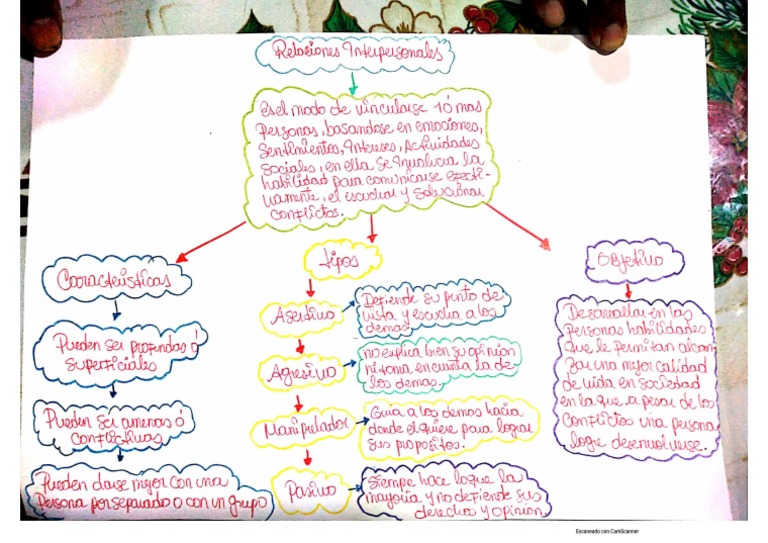 Relaciones Interpersonales
es el modo de vincularse 1 ó mas
Personas, basandose en emociones,
Sentimientos, Intereses, Actividades
Sociales, en ella se involucra la
habilidad para comunicarse efecti-
vamente, el escuchar y solucionar
conflictos.
Características
Pueden ser profundas ó
superficiales
Pueden ser amenas ó
conflictivas
Pueden darse mejor con una
Persona por separado o con un grupo
tipos
Asertivo
Defiende su punto de
vista y escucha a los
demas.
Agresivo
no explica bien su opinión
ni toma en cuenta la de
los demas.
Manipulador
Guia a los demas hacia
donde el quiere para lograr
sus propositos.
Pasivo
Siempre hace lo que la
mayoria y no defiende sus
derecho y opinión
Objetivo
Desarrollar en las
Personas habilidades
que le permitan alcan-
zar una mejor calidad
de vida en sociedad
en la que a pesar de los
conflictos una persona
logre desenvolverse.
Escaneado con CamScanner